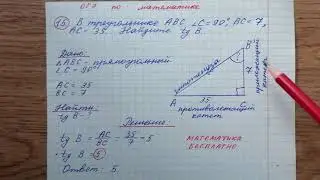 ОГЭ по математике
15 В треугольнике ABC, ∠C=90°, BC=7,
AC=35. Найдите tg B.
Дано:
△ABC - прямоугольный
∠C = 90°
AC = 35
BC = 7
Найти:
tg B - ?
гипотенуза
B
7
прилежащий катет
A
35
C
противолежащий
катет
Решение:
tg B = AC/BC = 35/7 = 5
tg B = 5
Ответ: 5.
МАТЕМАТИКА
БЕСПЛАТНО